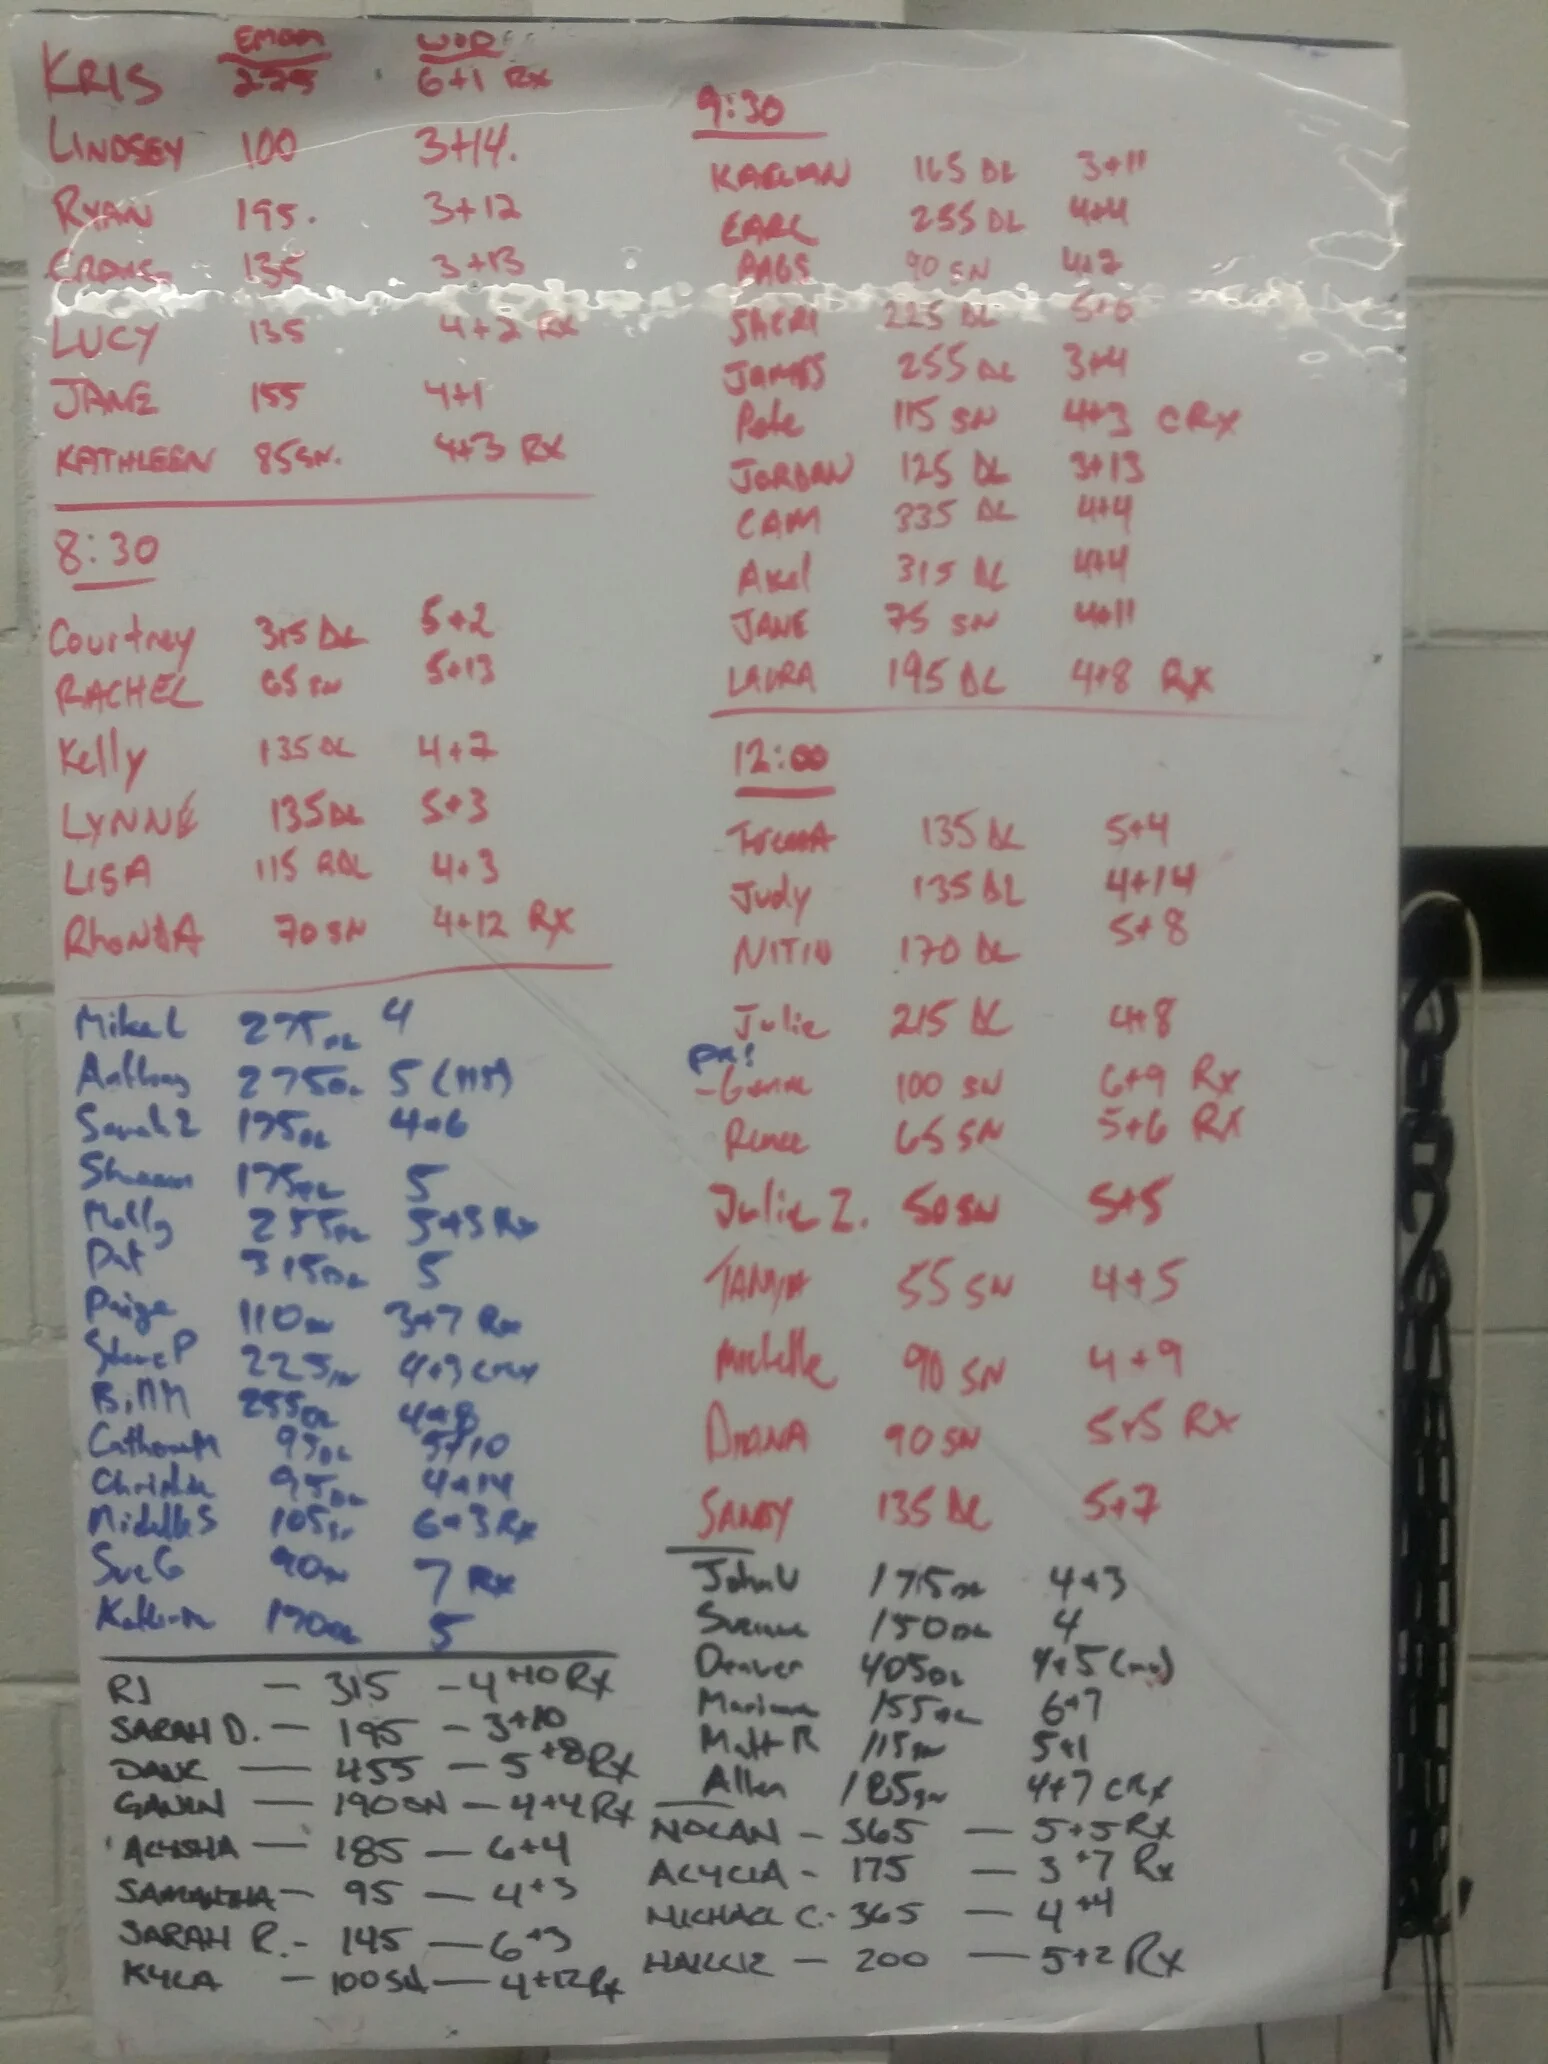 EMOM WOD
KRIS 275 6+1 Rx
LINDSEY 100 3+14.
RYAN 195. 3+12
135 3+13
LUCY 135 4+2 Rx
JANE 155 4+1
KATHLEEN 85 SN. 4+3 RX
8:30
Courtney 315 DL 5+2
RACHEL 65 SN 5+13
Kelly 135 DL 4+7
LYNNE 135 DL 5+3
LISA 115 RDL 4+3
RHONDA 70 SN 4+12 RX
Mike L 275 DL 4
Anthony 275 DL 5
Sarah Z 195 DL 4+6
Shannon 175 DL 5
Molly 255 DL 5+3 Rx
Pat 315 DL 5
Paige 110 SN 3+7 Rx
Steve P 225 4+3 CRx
Bill M 255 DL 4+8
95 DL 5+10
95 DL 4+14
Michelle S 105 SN 6+3 Rx
Sue G 90 SN 7 Rx
DL 5
RJ — 315 — 4+10 Rx
SARAH D. — 195 — 3+10
DAVE — 455 — 5+8 Rx
GAVEN — 190 SN — 4+4 Rx
ALYSHA — 185 — 6+4
SAMANTHA — 95 — 4+3
SARAH R. - 145 — 6+3
KYLA — 100 SN — 4+12 Rx
9:30
165 DL 3+11
EARL 255 DL 4+4
90 SN 4+7
SHERI 225 DL 5+6
JAMES 255 DL 3+4
Pete 115 SN 4+3 CRX
JORDAN 125 DL 3+13
CAM 335 DL 4+4
Axel 315 DL 4+4
JANE 75 SN 4+11
LAURA 195 DL 4+8 RX
12:00
135 DL 5+4
Judy 135 DL 4+14
NITIN 170 DL 5+8
Julie 215 DL 4+8
PR!
100 SN 6+9 Rx
Renee 65 SN 5+6 RX
Julie Z. 50 SN 5+5
TANYA 55 SN 4+5
Michelle 90 SN 4+9
DIANA 90 SN 5+5 RX
SANDY 135 DL 5+7
John V 175 DL 4+3
150 DL 4
Denver 405 DL 4+5
155 DL 6+7
Matt R 115 SN 5+1
Allen 185 SN 4+7 CRx
NOLAN — 365 — 5+5 Rx
ALYCIA - 175 — 3+7 Rx
MICHAEL C. - 365 — 4+4
HAILLIE — 200 — 5+2 Rx